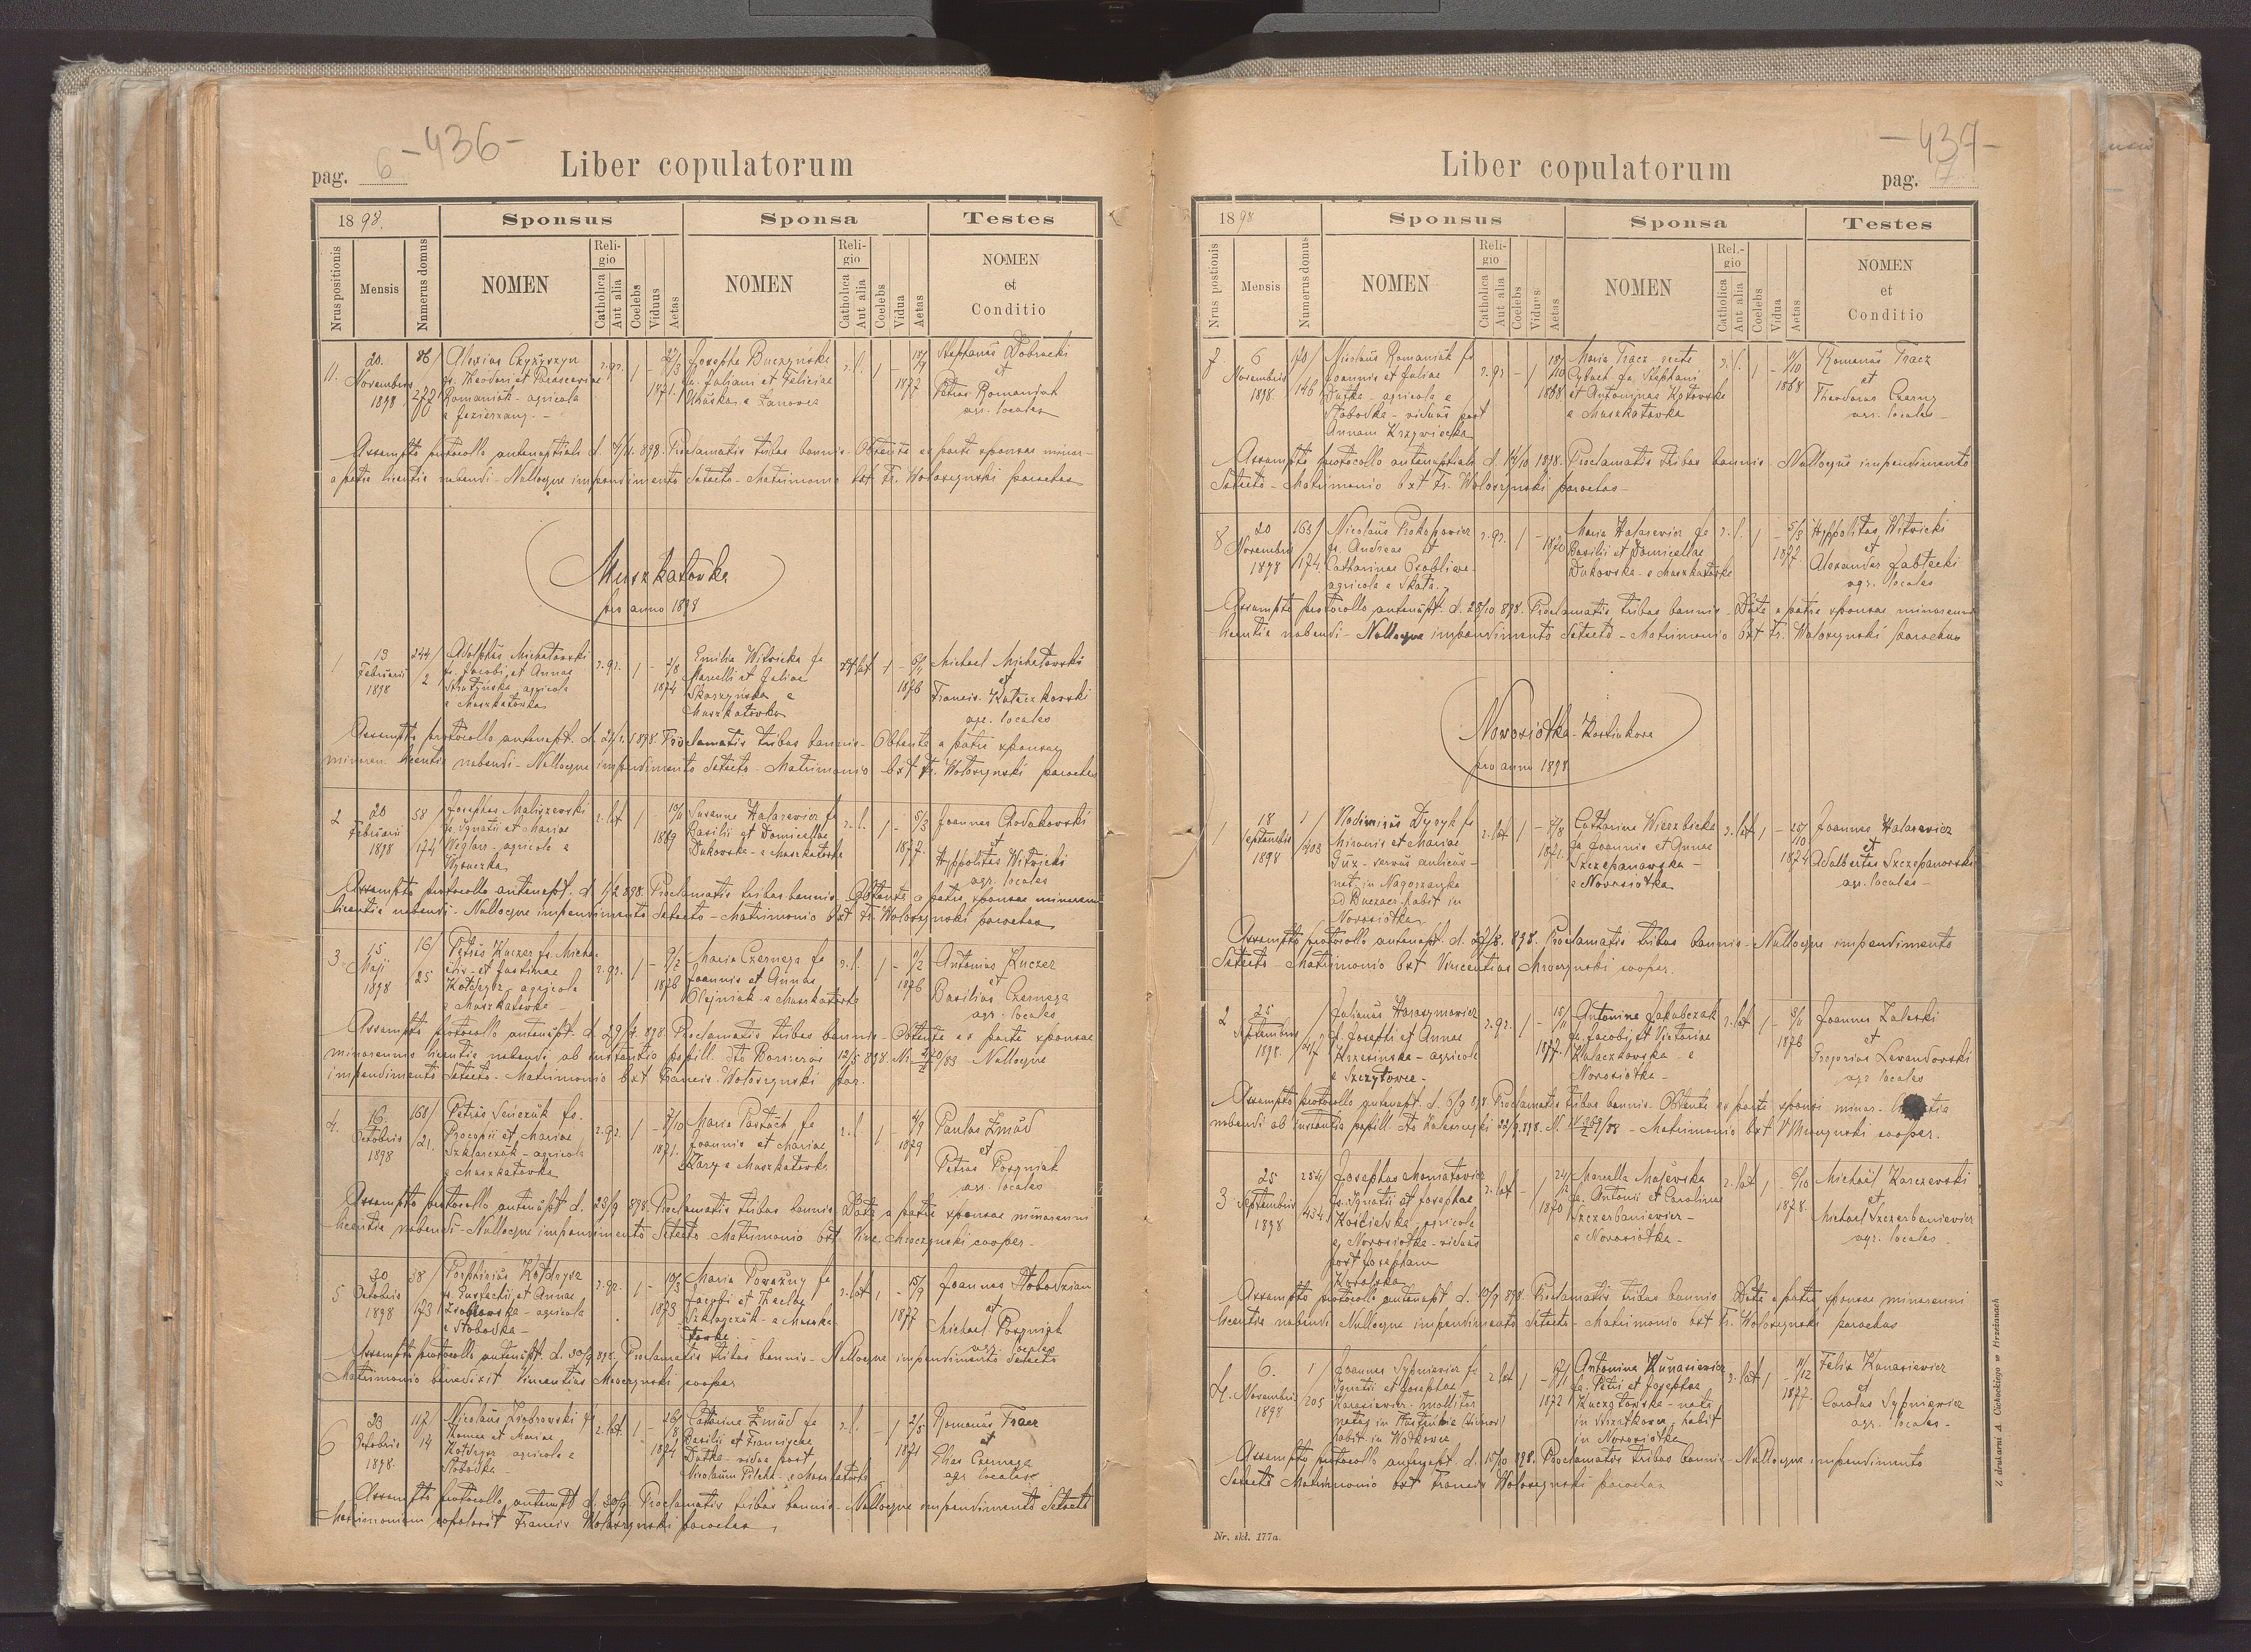 -436-
pag. 6
Liber copulatorum
1898.
Sponsus
Sponsa
Testes
Nrus positionis
Mensis
Numerus domus
NOMEN
Religio
Catholica
Aut alia
Coelebs
Viduus
Aetas
NOMEN
Religio
Catholica
Aut alia
Coelebs
Vidua
Aetas
NOMEN
et
Conditio
11. 20. Novembris 1898
86/
Alexius Czyżyszyn
fs. Theodori et Parasceviae
Romaniak - agricola
e Jezierzany. -
r. gr. 1 - 1871.
Josepha Buczyńska
fa. Juliani et Feliciae
e Lanowce
r. l. 1 - 1877
Stephanus Dobrucki
et
Petrus Romaniuk
agr. locales
Assumpto protocollo antenuptiali d. 4/11. 898. Proclamatis tribus bannis - Obtenta ex parte sponsae minor-
a patre licentia nubendi - Nulloque impendimento detecto - Matrimonio bxt Fr. Wołoszyński parochus
Muszkatówka
pro anno 1898
1 13 Februarii 1898
244/2
Adolphus Michałowski
fs. Jacobi et Annae
Strutyńska agricola
e Muszkatówka
r. gr. 1 - 2/8 1874
Emilia Witwicka fa
Marcelli et Juliae
Skarzyńska e
Muszkatówka
1 - 1876
Michael Michałowski
et
Francis. Kułaczkowski
agr. locales
Assumpto protocollo antenupt. d. 21/1. 898. Proclamatis tribus bannis - Obtenta a patre sponsae
minoren. licentia nubendi - Nulloque impendimento detecto - Matrimonio bxt Fr. Wołoszyński parochus
2 20 Februarii 1898
58/174
Josephus Maliszewski
fs Ignatii et Mariae
Węglarz - agricola e
Wysuczka
r. lat 1 - 1869
Susanna Halarewicz fa
Basilii et Domicellae
Dukowska - e Muszkatówka
r. l. 1 - 5/3 1877.
Joannes Chodakowski
et
Hyppolitus Witwicki
agr. locales
Assumpto protocollo antenupt. d 1/2 898. Proclamatis tribus bannis - Obtenta a patre sponsae minoren
licentia nubendi - Nulloque impendimento detecto - Matrimonio bxt Fr. Wołoszyński parochus
3. 15 Maji 1898
16/25
Petrus Kuczer fs. Micha-
elis et Justinae
Kołdrysz agricola
e Muszkatówka
r. gr. 1 - 1876
Maria Czernega fa
Joannis et Annae
Olejniak e Muszkatówka
r. l. 1 - 1876
Antonius Kuczer
et
Basilius Czernega
agr. locales
Assumpto protocollo antenupt. d. 29/4 898. Proclamatis tribus bannis - Obtenta ex parte sponsae
minorennis licentia nubendi ab instantia pupill. dto Borszczów 12/5 898. Nulloque
impendimento detecto. Matrimonio bxt Francis. Wołoszyński par.
4. 16. Octobris 1898
168/21.
Petrus Seńczuk fs.
Procopii et Mariae
Szklarczuk - agricola
e Muszkatówka
r. gr. 1 - 1871.
Maria Pastuch fa
Joannis et Mariae
e Muszkatówka
r. l. 1 - 4/9 1879
Paulus Żmud
et
Petrus Posyniak
agr. locales
Assumpto protocollo antenupt d. 23/9 898. Proclamatis tribus bannis Data a patre sponsae minorenni
licentia nubendi - Nulloque impendimento detecto Matrimonio bxt Vinc. Mroczyński cooper.
5 30 Octobris 1898
38/173
Porphirius Kołdrysz
fs. Eustachii et Annae
Dobrowska - agricola
e Słobodka -
r. gr. 1 - 1873
Maria Poważny fa
Jacobi et Theclae
Szklarczuk - e Muszka-
tówka
r. lat 1 - 15/9 1877
Joannes Słobodzian
et
Michael Posyniak
agr. locales
Assumpto protocollo antenupt. d. 30/9 898. Proclamatis tribus bannis - Nulloque impendimento detecto
Matrimonio benedixit Vincentius Mroczyński cooper
6 23 Octobris 1898.
117/14
Nicolaus Dobrowski fs
Thomae et Mariae
Kołdrysz agricola e
Słobodka -
r. lat. 1 - 1874
Catharina Żmud fa
Basilii et Franciscae
Dutka - vidua post
Nicolaum Pilcht - e Muszkatówka
r. l. - 1 2/5 1871
Romanus Tracz
et
Elias Czernega
agr locales
Assumpto protocollo antenupt d. 30/9. Proclamatis tribus bannis - Nulloque impendimento detecto
Matrimonium copulavit Francis Wołoszyński parochus
-437-
Liber copulatorum
pag. 7
1898
Sponsus
Sponsa
Testes
Nrus postionis
Mensis
Numerus domus
NOMEN
Religio
Catholica
Aut alia
Coelebs
Viduus
Aetas
NOMEN
Religio
Catholica
Aut alia
Coelebs
Vidua
Aetas
NOMEN
et
Conditio
7. 6 Novembris 1898.
170/146
Nicolaus Romaniuk fs
Joannis et Juliae
Dutka - agricola e
Słobodka - viduus post
Annam Krzywiecka
r. gr. - 1 1868
Maria Tracz - recte
Cybach fa. Stephani
et Antoninae Kotowska
e Muszkatówka
r. l. 1 - 1868
Romanus Tracz
et
Theodorus Czarny
agr. locales -
Assumpto protocollo antenuptiali d. 14/10 1898. Proclamatis tribus bannis - Nulloque impendimento
detecto - Matrimonio bxt Fr. Wołoszyński parochus -
8 20 Novembris 1898
163/174
Nicolaus Prokopowicz
fs. Andreae et
Catharinae
agricola e Skała.
r. gr. 1 - 1870
Maria Halarewicz fa
Basilii et Domicellae
Dukowska - e Muszkatówka
r. l. 1 - 5/3 1877
Hyppolitus Witwicki
et
Alexander Jabłecki
agr. locales
Assumpto protocollo antenupt. d. 28/10 898. Proclamatis tribus bannis - Data a patre sponsae minorenni
licentia nubendi - Nulloque impendimento detecto - Matrimonio bxt Fr. Wołoszyński parochus
Nowosiółka - Kostiukowa
pro anno 1898
1 18 Septembris 1898
1/403
Wladimirus Dyzyk fs
Mironis et Mariae
Guz - servus aulicus -
nat. in Nagorzanka
ad Buczacz habit in
Nowosiółka
r. lat 1 - 1871.
Catharina Wierzbicka
fa Joannis et Annae
Szczepanowska -
e Nowosiółka
r. lat 1 - 25/10 1874
Joannes Halarewicz
et
Adalbertus Szczepanowski
agr. locales -
Assumpto protocollo antenupt. d. 27/8. 898. Proclamatis tribus bannis - Nulloque impendimento
detecto Matrimonio bxt Vincentius Mroczyński cooper.
2 25 Septembris 1898.
Julianus Harasymowicz
fs. Josephi et Annae
Krzesińska - agricola
e Szczytowce -
r. gr. 1 - 1877.
Antonina Jakubczak
fa. Jacobi et Victoriae
Kułaczkowska - e
Nowosiółka -
r. lat 1 - 1876
Joannes Zaleski
et
Gregorius Lewandowski
agr locales
Assumpto protocollo antenupt. d. 6/9 898 Proclamatis tribus bannis - Obtenta ex parte sponsi minor. licentia
nubendi ab instantia pupill. dto Zaleszczyki 22/9. 898. Matrimonio bxt V Mroczyński cooper.
3 25 Septembris 1898
254/434
Josephus Mamatowicz
fs. Ignatii et Josephae
Kościelska agricola
e Nowosiółka - viduus
post Josepham
Kowalska
r. lat - 1 1870
Marcella Majewska
fa. Antonii et Carolinae
Szczerbaniewicz -
e Nowosiółka -
r. lat 1 - 6/10 1878.
Michaël Karczewski
et
Michael Szczerbaniewicz
agr. locales
Assumpto protocollo antenupt d. 10/9 898. Proclamatis tribus bannis Data a patre sponsae minorenni
licentia nubendi Nulloque impendimento detecto - Matrimonio bxt Fr. Wołoszyński parochus
4. 6. Novembris 1898
1/205
Joannes Sypniewicz fs
Ignatii et Josephae
Karasiewicz - molitor
natus in
habit in Wołkowce
r lat 1 - 1872
Antonina Kunasiewicz
fa. Petri et Josephae
Kuczątowska - nata
in habit
in Nowosiółka
r. lat 1 - 1877.
Felix Kunasiewicz
et
Carolus Sypniewicz
agr. locales -
Assumpto protocollo antenupt. d. 15/10 898. Proclamatis tribus bannis - Nulloque impendimento
detecto Matrimonio bxt Francis Wołoszyński parochus
Nr. skł. 177a.
Z drukarni A. Cichockiego w Brzeżanach